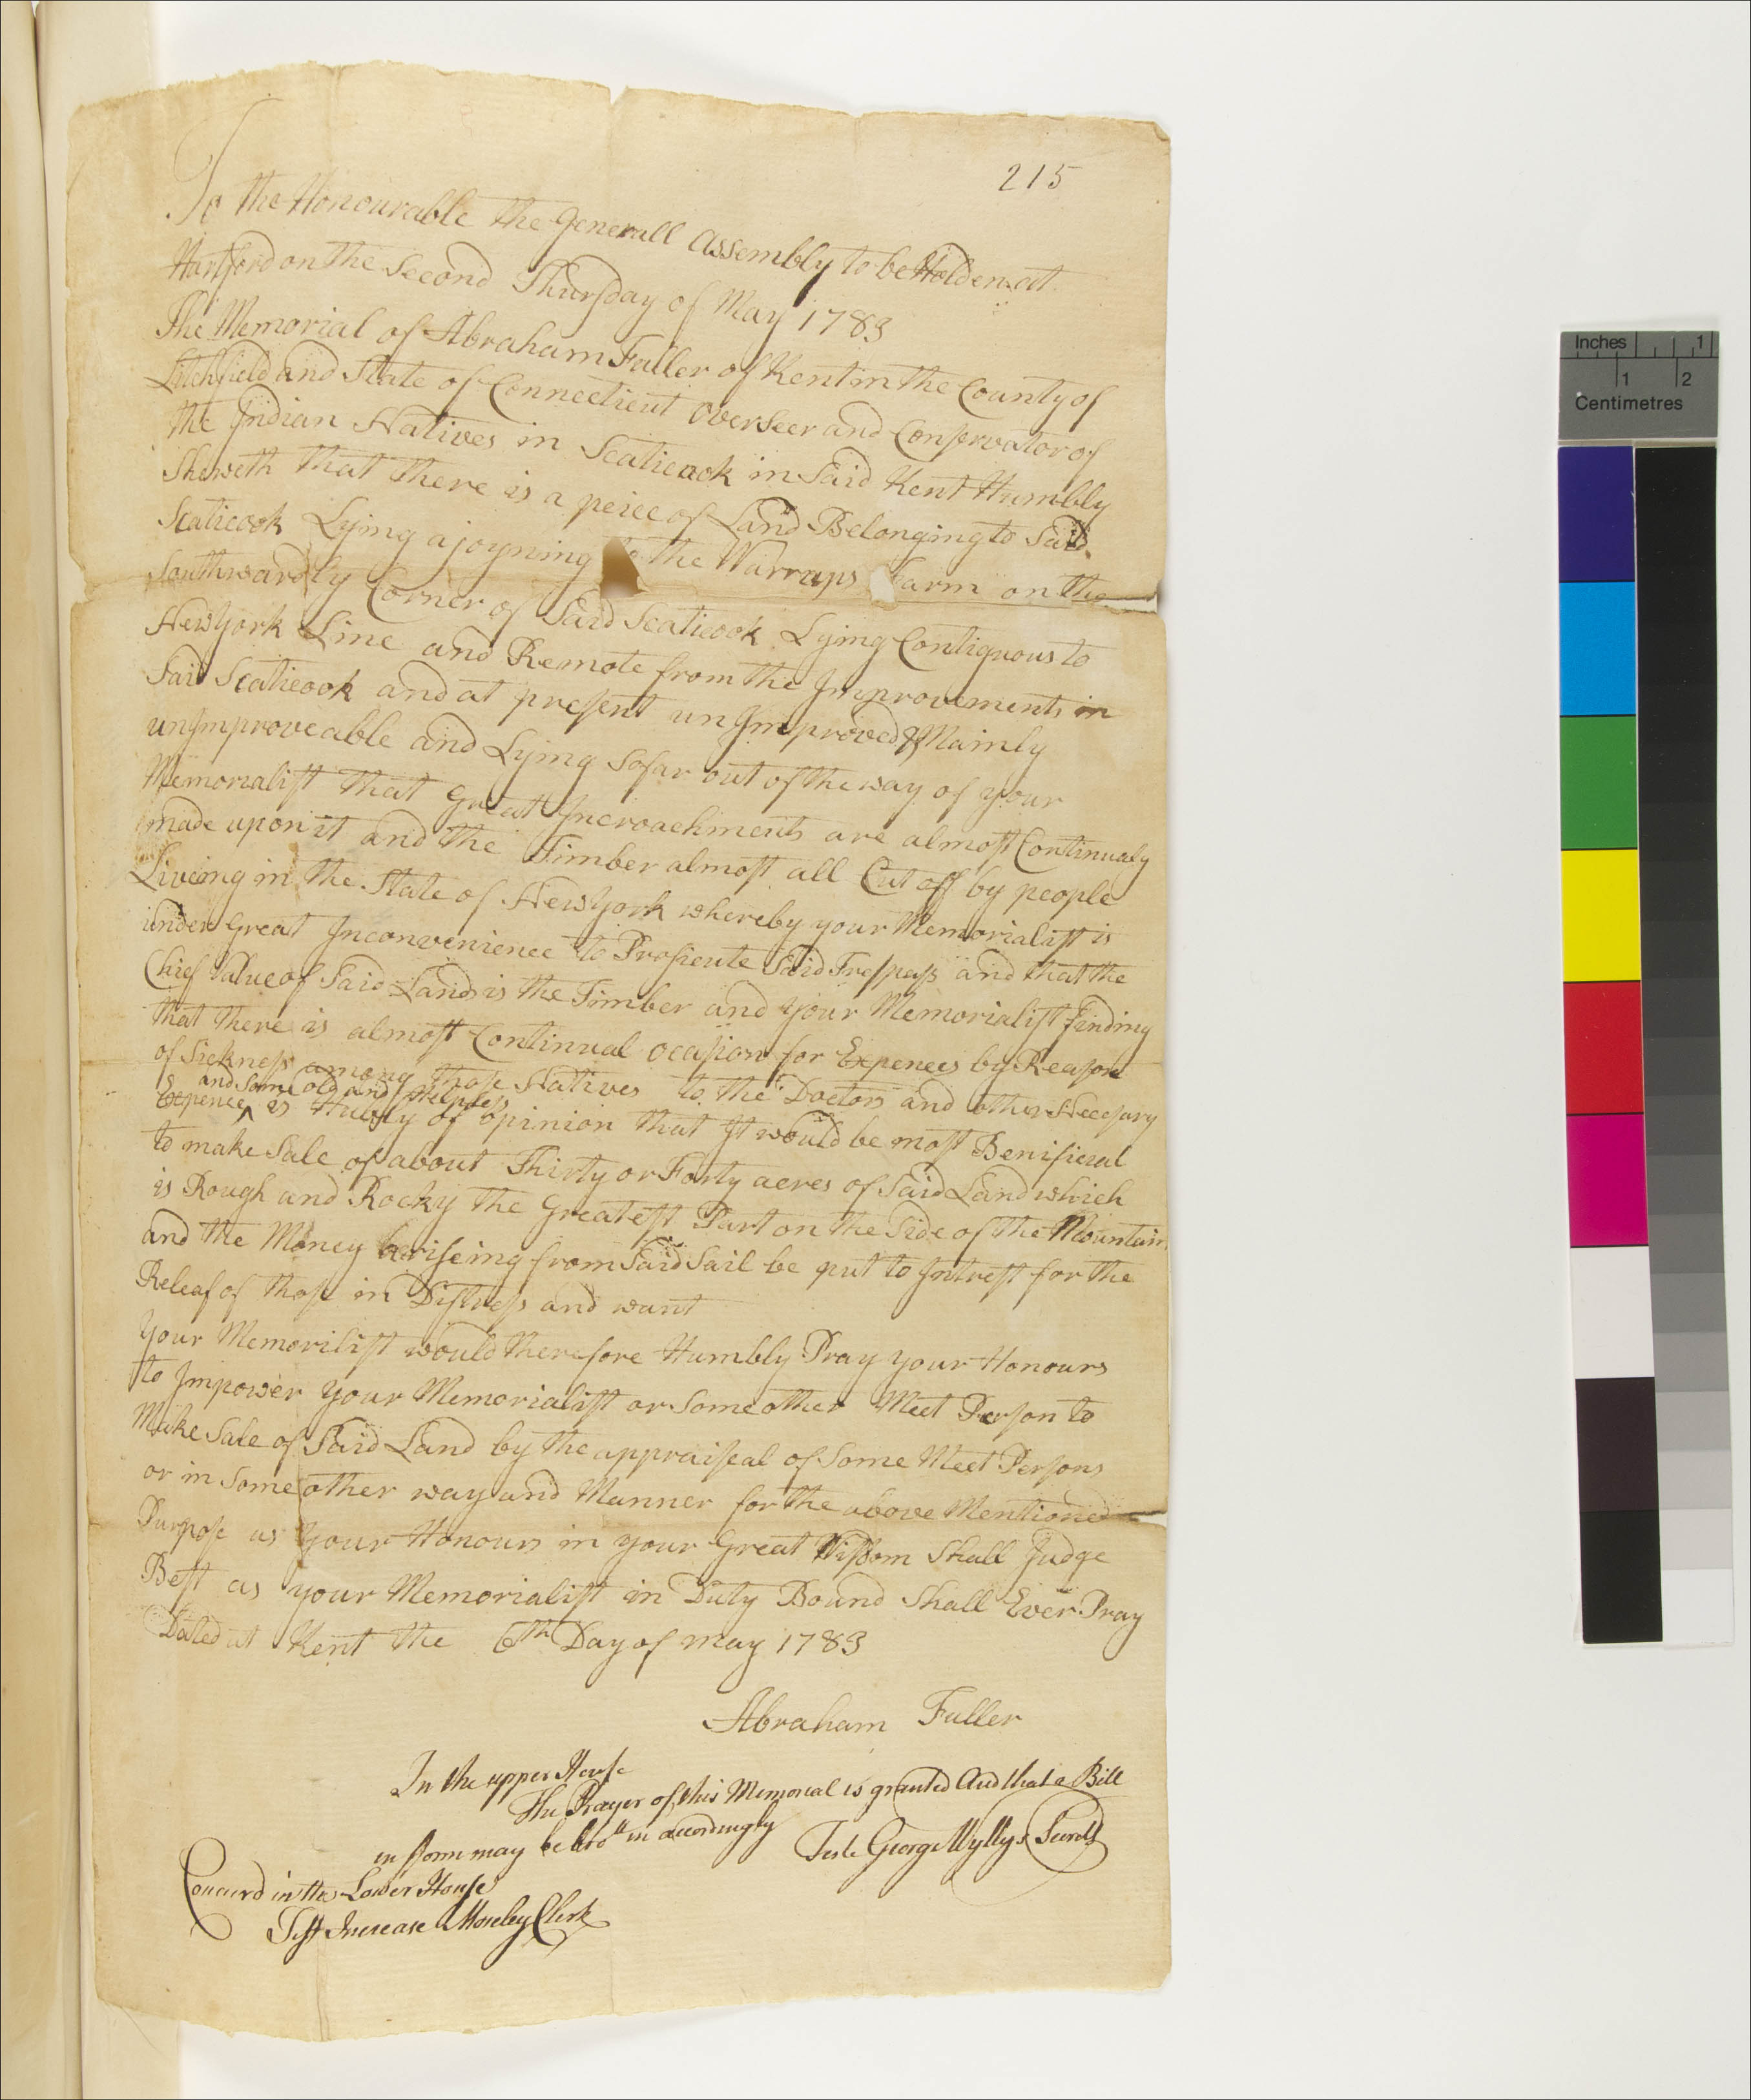 215
To the Honourable the Generall Assembly to be Holden att
Hartford on the Second Thursday of May 1783
The Memorial of Abraham Fuller of Kent in the County of
Litchfield and State of Connecticut Overseer and Conservator of
the Indian Natives in Scaticook in Said Kent Humbly
Sheweth that there is a peice of Land Belonging to Said
Scaticook Lying ajoyning to the Warrups Farm on the
Southwardly Corner of Said Scaticook Lying Contiguous to
New York Line and Remote from the Improvements in
Said Scaticook and at present unImproved & Mainly
unImproveable and Lying so far out of the way of your
Memorialist that Great Incroachments are almost Continualy
made upon it and the Timber almost all Cut off by people
Liveing in the State of New York whereby your Memorialist is
under Great Inconvenience to Prosicute Said Trespass and that the
Chief Value of Said Land is the Timber and your Memorialist finding
that there is almost Continual Ocasion for Expences by Reason
of Sickness among those Natives to the Doctors and other Necesary
and Some old and Helpless
Expences ^ is Humbly of opinion that It would be most Benificial
to make Sale of about Thirty or Forty acres of Said Land which
is Rough and Rocky the Greatest Part on the Side of the Mountain
and the Money Ariseing from Said Sail be put to Intrest for the
Releaf of those in Distress and want
Your Memorilist would therefore Humbly Pray your Honours
to Impower your Memorialist or Some other Meet Person to
Make Sale of Said Land by the appraiseal of Some Meet Persons
or in Some other way and Manner for the above Mentioned
Purpose as Your Honours in your Great Wisdom Shall Judge
Best as your Memorialist in Duty Bound Shall Ever Pray
Dated at Kent the 6th Day of may 1783
Abraham Fuller
In the upper House
The Prayer of this Memorial is granted And that a Bill
in form may be brot in accordingly
Teste George Wyllys Secrety
Concurd in the Lower House
Test Increase Moseley Clerk
Inches 1
1 2
Centimetres